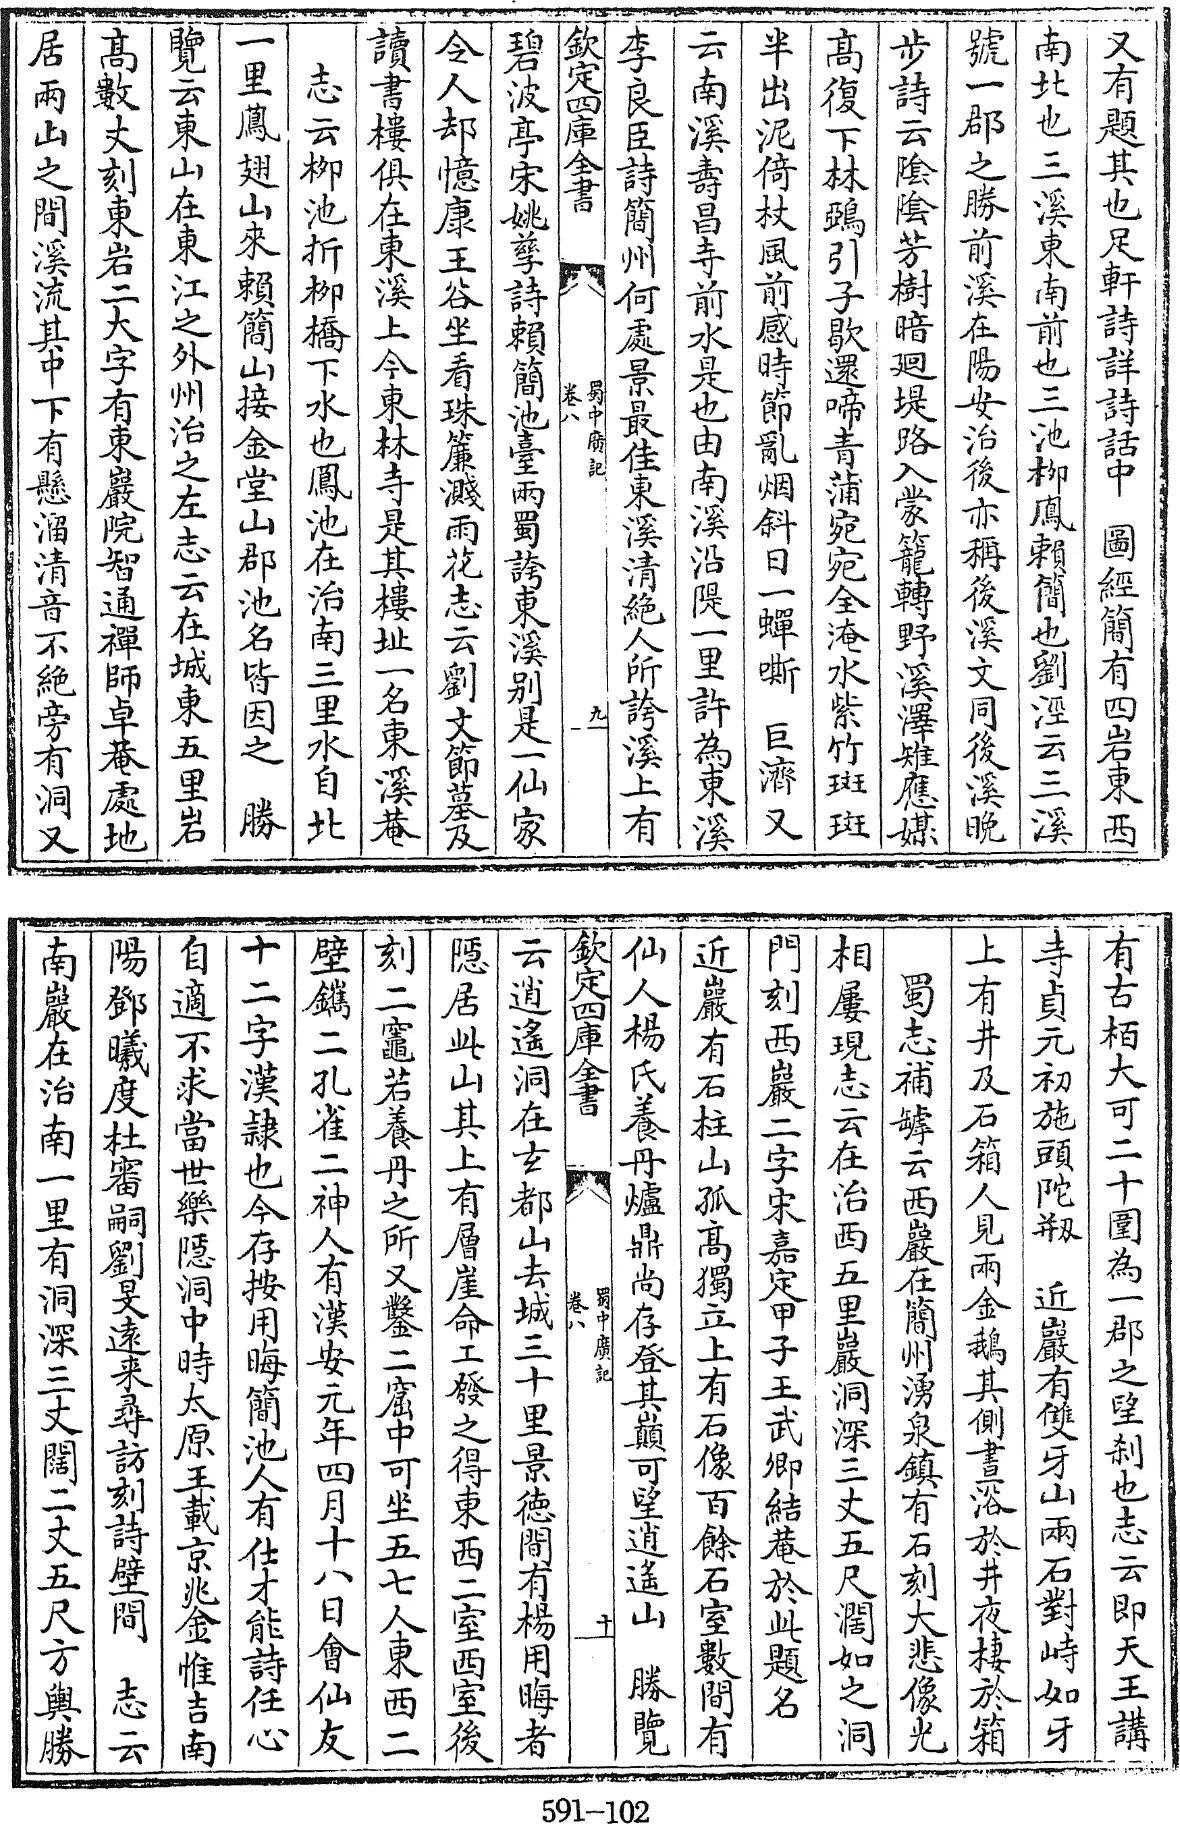 又有題其也足軒詩詳詩話中　圖經簡有四岩東西
南北也三溪東南前也三池栁鳳賴簡也劉涇云三溪
號一郡之勝前溪在陽安治後亦稱後溪文同後溪晚
步詩云陰陰芳樹暗廻堤路入蒙籠轉野溪澤雉應媒
髙復下林鵶引子歇還啼青蒲宛宛全淹水紫竹斑斑
半出泥倚杖風前感時節亂烟斜日一蟬嘶　巨濟又
云南溪壽昌寺前水是也由南溪沿隄一里許為東溪
李良臣詩簡州何處景最佳東溪清絶人所誇溪上有
欽定四庫全書
蜀中廣記
卷八
九
碧波亭宋姚孳詩賴簡池臺兩蜀誇東溪别是一仙家
令人却憶康王谷坐看珠簾濺雨花志云劉文節墓及
讀書樓俱在東溪上今東林寺是其樓址一名東溪菴
志云栁池折栁橋下水也鳳池在治南三里水自北
一里鳳翅山來賴簡山接金堂山郡池名皆因之　勝
覽云東山在東江之外州治之左志云在城東五里岩
髙數丈刻東岩二大字有東巖院智通禪師卓菴處地
居兩山之間溪流其中下有懸溜清音不絶旁有洞又
有古栢大可二十圍為一郡之望刹也志云即天王講
寺貞元初施頭陀剏　近巖有雙牙山兩石對峙如牙
上有井及石箱人見兩金鵝其側晝浴於井夜棲於箱
蜀志補罅云西巖在簡州湧泉鎮有石刻大悲像光
相屢現志云在治西五里巖洞深三丈五尺濶如之洞
門刻西巖二字宋嘉定甲子王武卿結菴於此題名
近巖有石柱山孤髙獨立上有石像百餘石室數間有
仙人楊氏養丹爐鼎尚存登其巔可望逍遙山　勝覽
欽定四庫全書
蜀中廣記
卷八
十
云逍遙洞在玄都山去城三十里景徳間有楊用晦者
隠居此山其上有層崖命工發之得東西二室西室後
刻二竈若養丹之所又鑿二窟中可坐五七人東西二
壁鐫二孔雀二神人有漢安元年四月十八日會仙友
十二字漢隷也今存按用晦簡池人有仕才能詩任心
自適不求當世樂隠洞中時太原王載京兆金惟吉南
陽鄧曦度杜審嗣劉旻遠來尋訪刻詩壁間　志云
南巖在治南一里有洞深三丈闊二丈五尺方輿勝
591-102